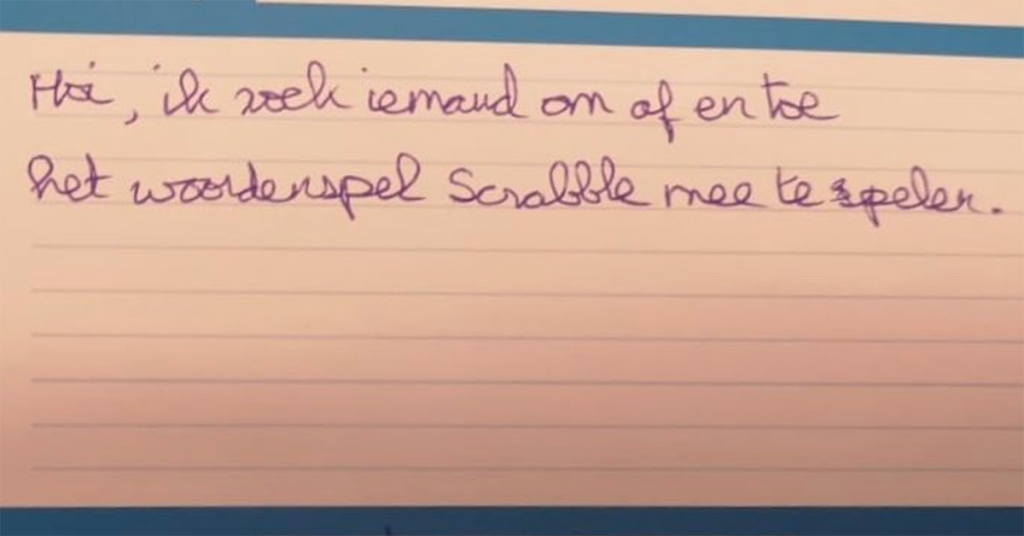 Hoi, ik zoek iemand om af en toe
het woordenspel Scrabble mee te spelen.